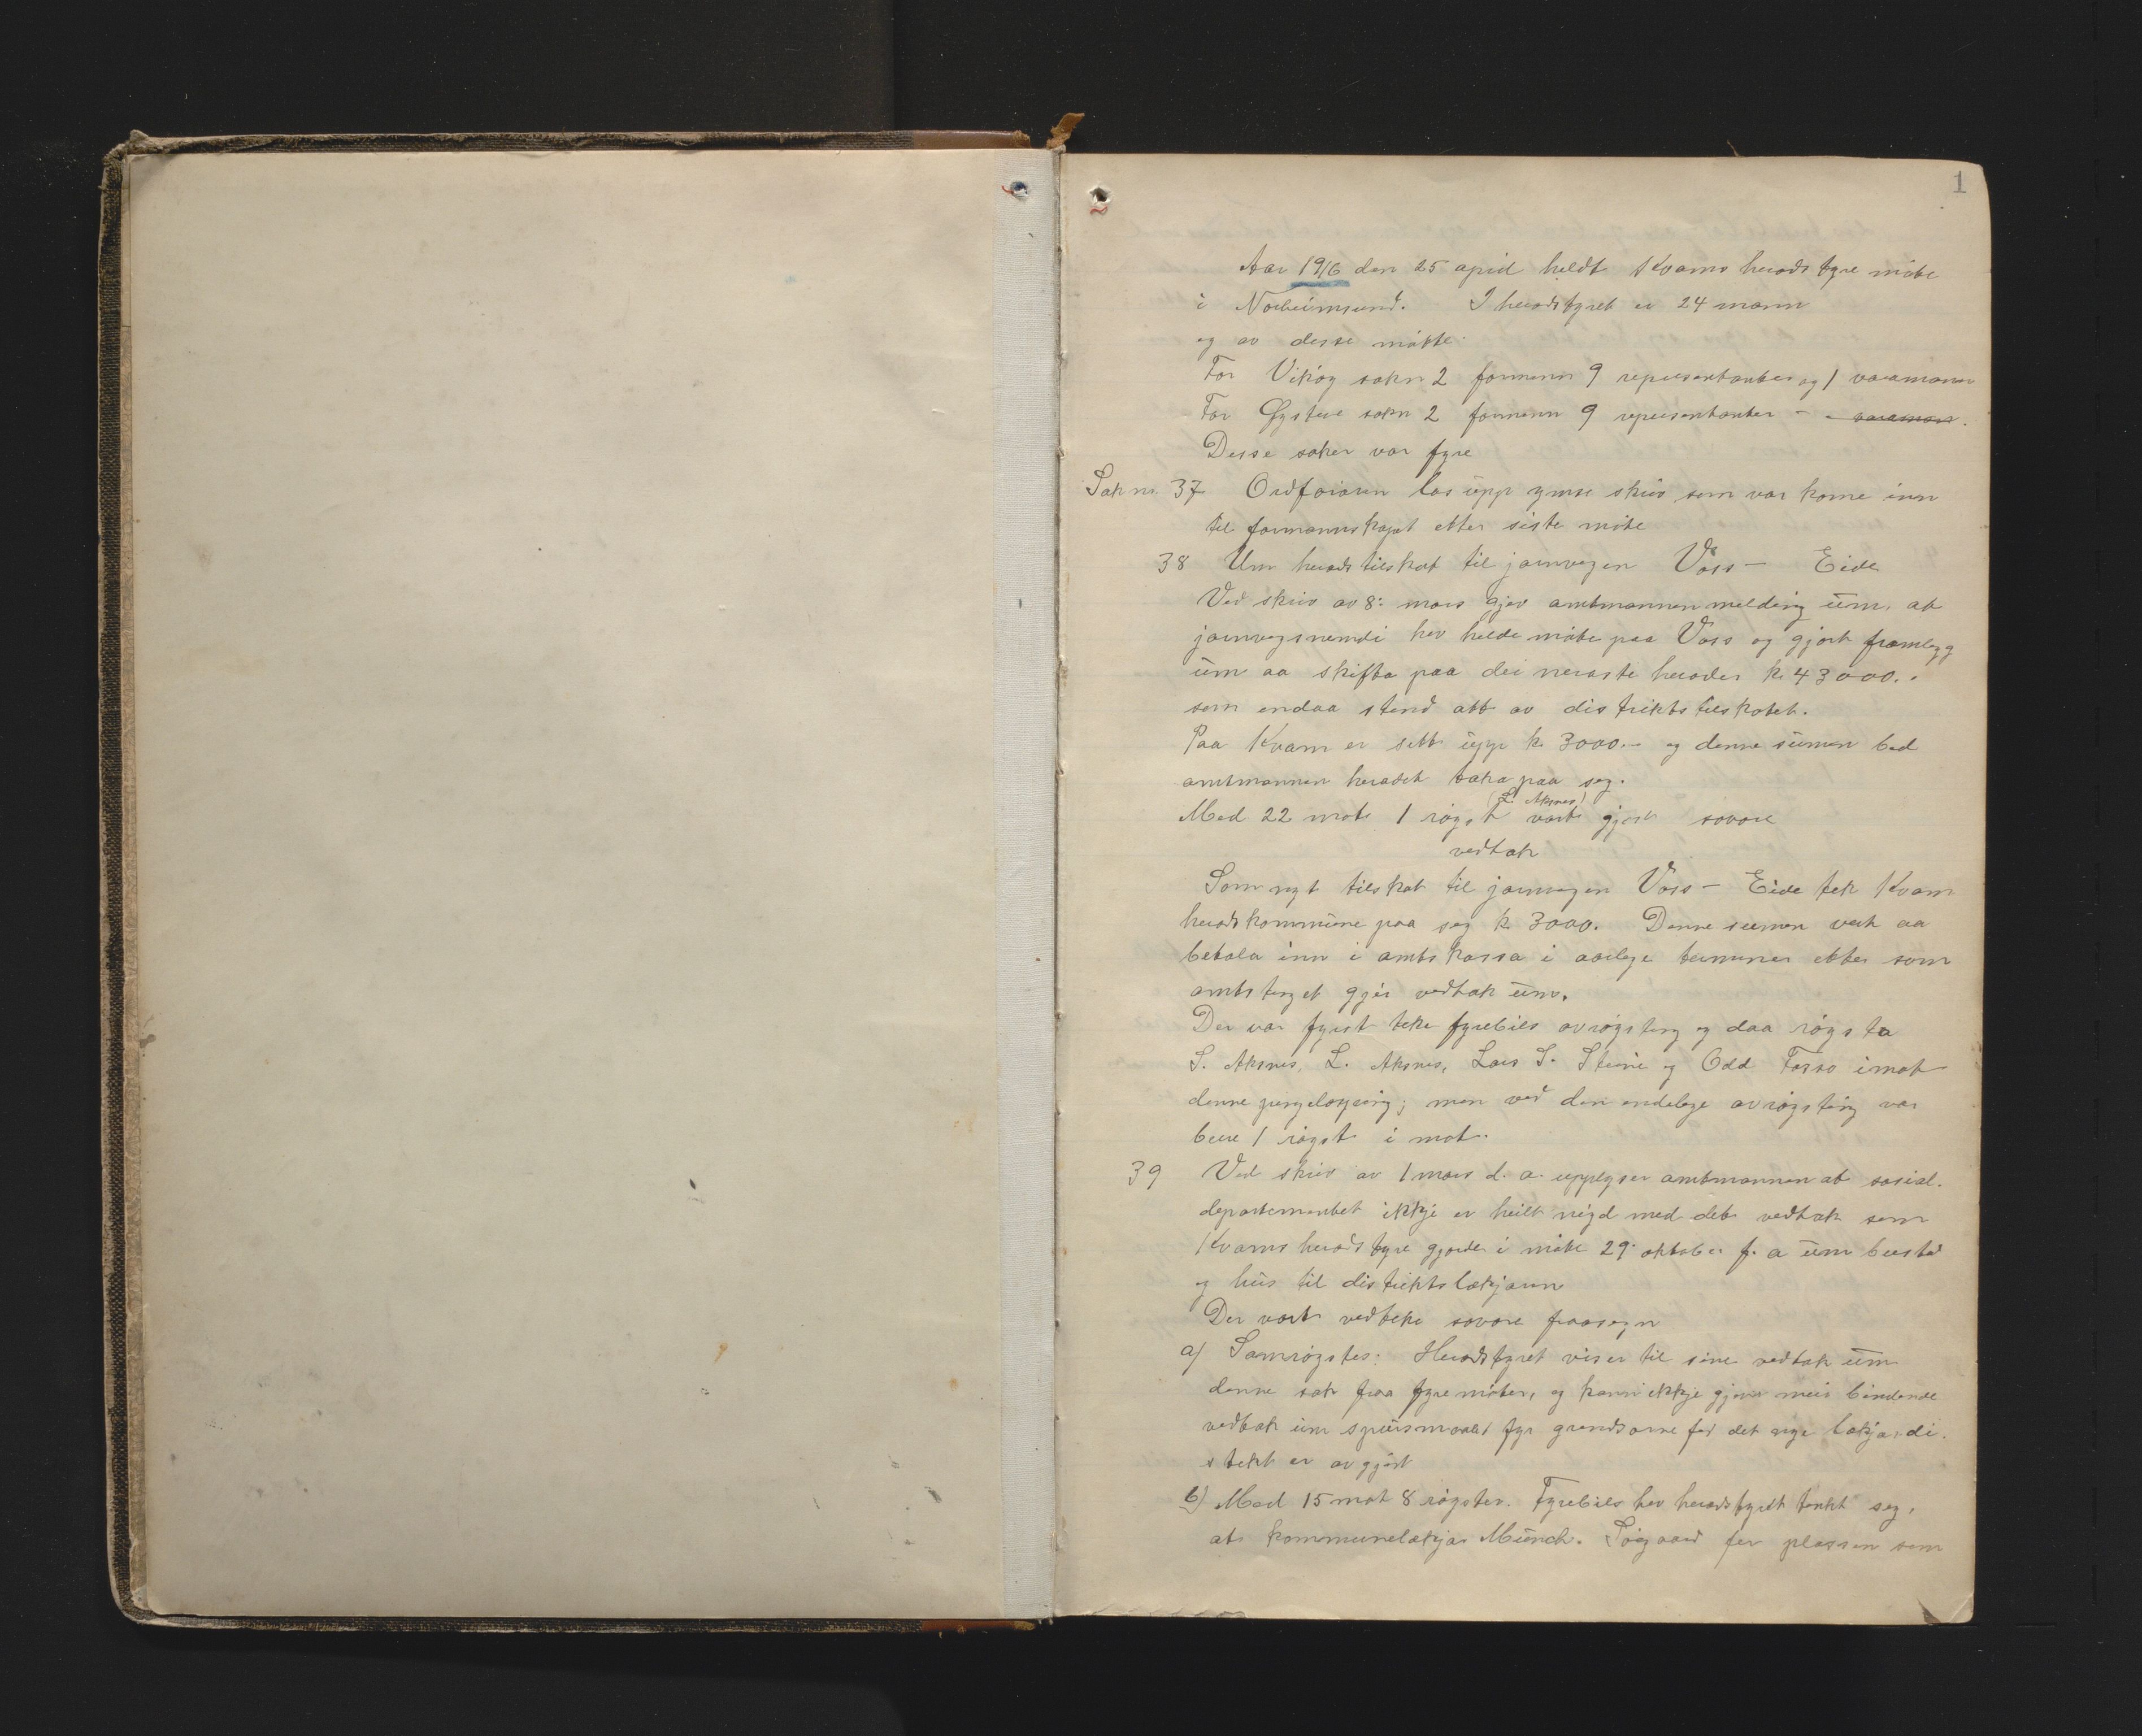 1
Aar 1916 den 25 april heldt Kvams heradstyre møte
i Norheimsund. I heradstyret er 24 mann
og av desse møtte.
For Vikøy sokn 2 formenn 9 representanter og 1 varamann
For Øystese sokn 2 formenn 9 representanter - - varamann.
Desse saker var fyre
Sak nr. 37 Ordføraren las upp ymse skriv som var kome inn
til formannskapet etter siste møte
38 Um heradstilskot til jarnvegen Voss - Eide
Ved skriv av 8. mars gjev amtmannen melding um, at
jarnvegsnemdi hev helde møte paa Voss og gjort framlegg
um aa skifta paa dei næraste herader k. 43000.-
som endaa stend att av distriktstilskotet.
Paa Kvam er sett upp k. 3000.- og denne summen bed
amtmannen heradet taka paa seg.
(L. Aksnes)
Med 22 mot 1 røyst vart gjort sovore
vedtak
Som nyt tilskot til jarnvegen Voss - Eide tek Kvam
heradskommune paa seg k. 3000. Denne summen vert aa
betala inn i amtskassa i aarlege terminer etter som
amtstinget gjer vedtak um.
Der var fyrst teke fyrebils avrøysting og daa røysta
S. Aksnes, L. Aksnes, Lars S. Steine og Odd Fosso imot
denne pengeløyving; men ved den endelege avrøysting var
berre 1 røyst i mot.
39 Ved skriv av 1 mars d. a. upplyser amtmannen at sosial-
departementet ikkje er heilt nøgd med det vedtak som
Kvams heradstyre gjorde i møte 29. oktober f. a um bustad
og hus til distriktslækjaren
Der vart vedteke sovore fraasegn
a) Samrøystes: Heradstyret viser til sine vedtak um
denne sak fraa fyre møter, og kann ikkje gjera meir bindende
vedtak um spursmaalet fyr grendsorne for det nye lækjardi-
strikt er avgjort
b) Med 15 mot 8 røyster. Fyrebils hev heradstyret tenkt seg,
at kommunelækjar Münch. Søgaard fer plassen som